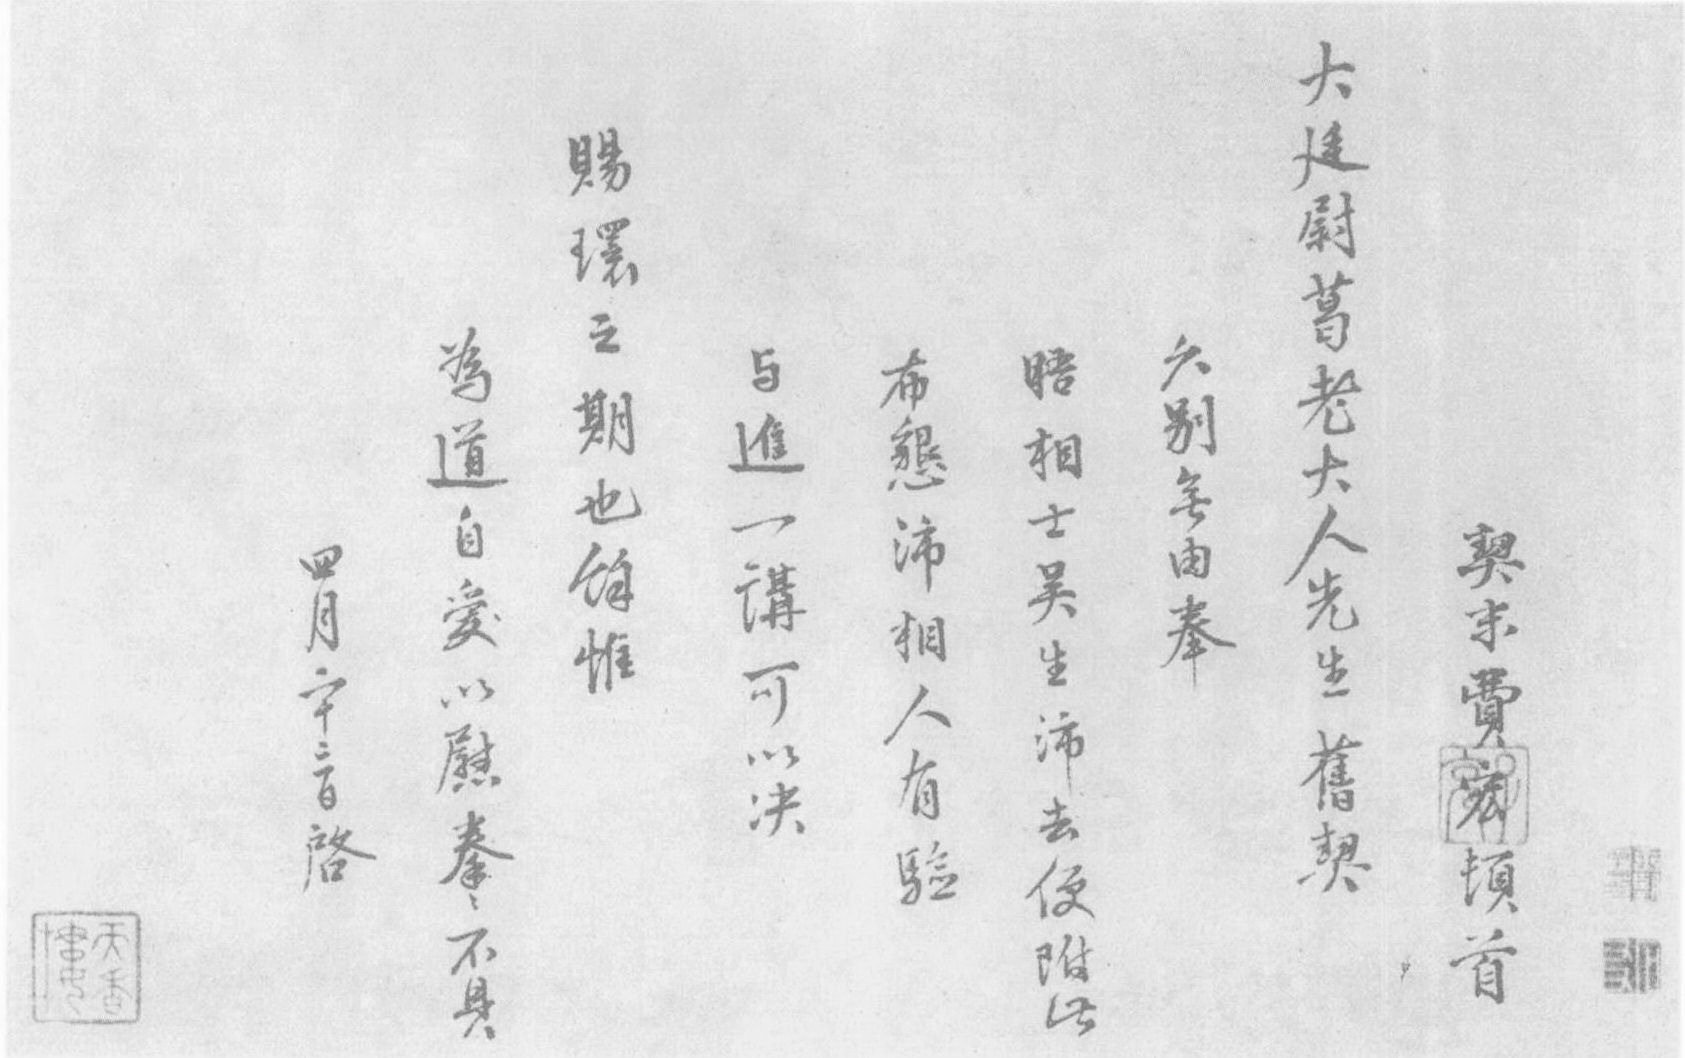 契末費宏頓首
大廷尉葛老大人先生舊契
久別無由奉
晤相士吴生沛去便附此
布懇沛相人有驗
与進一講可以决
賜環之期也餘惟
為道自愛以慰拳〻不具
四月二十二日啓